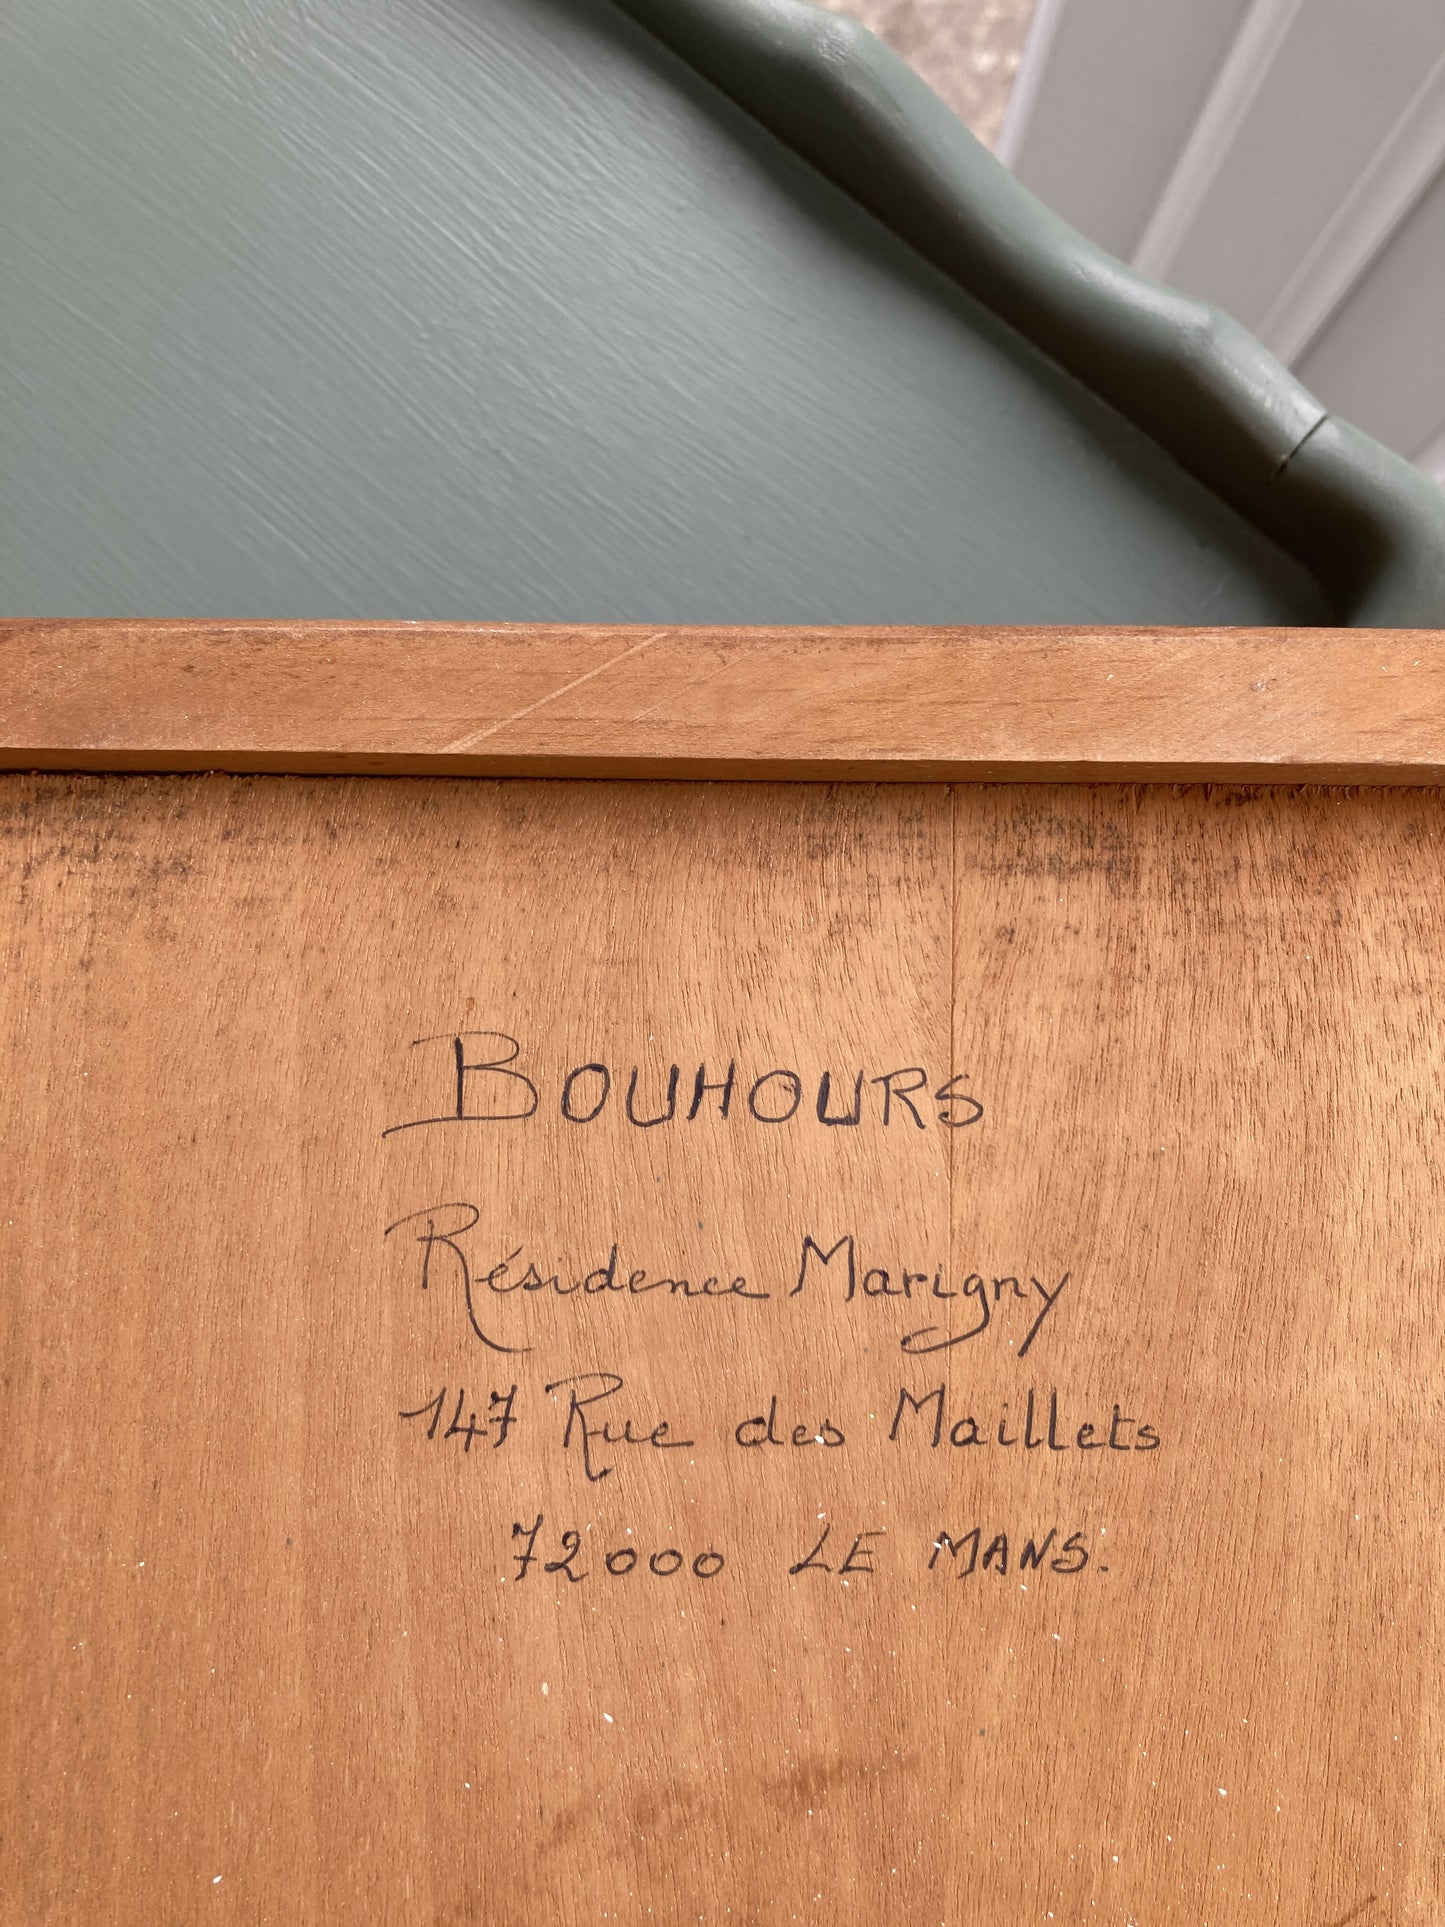 BOUHOURS
Résidence Marigny
147 Rue des Maillets
72000 LE MANS.